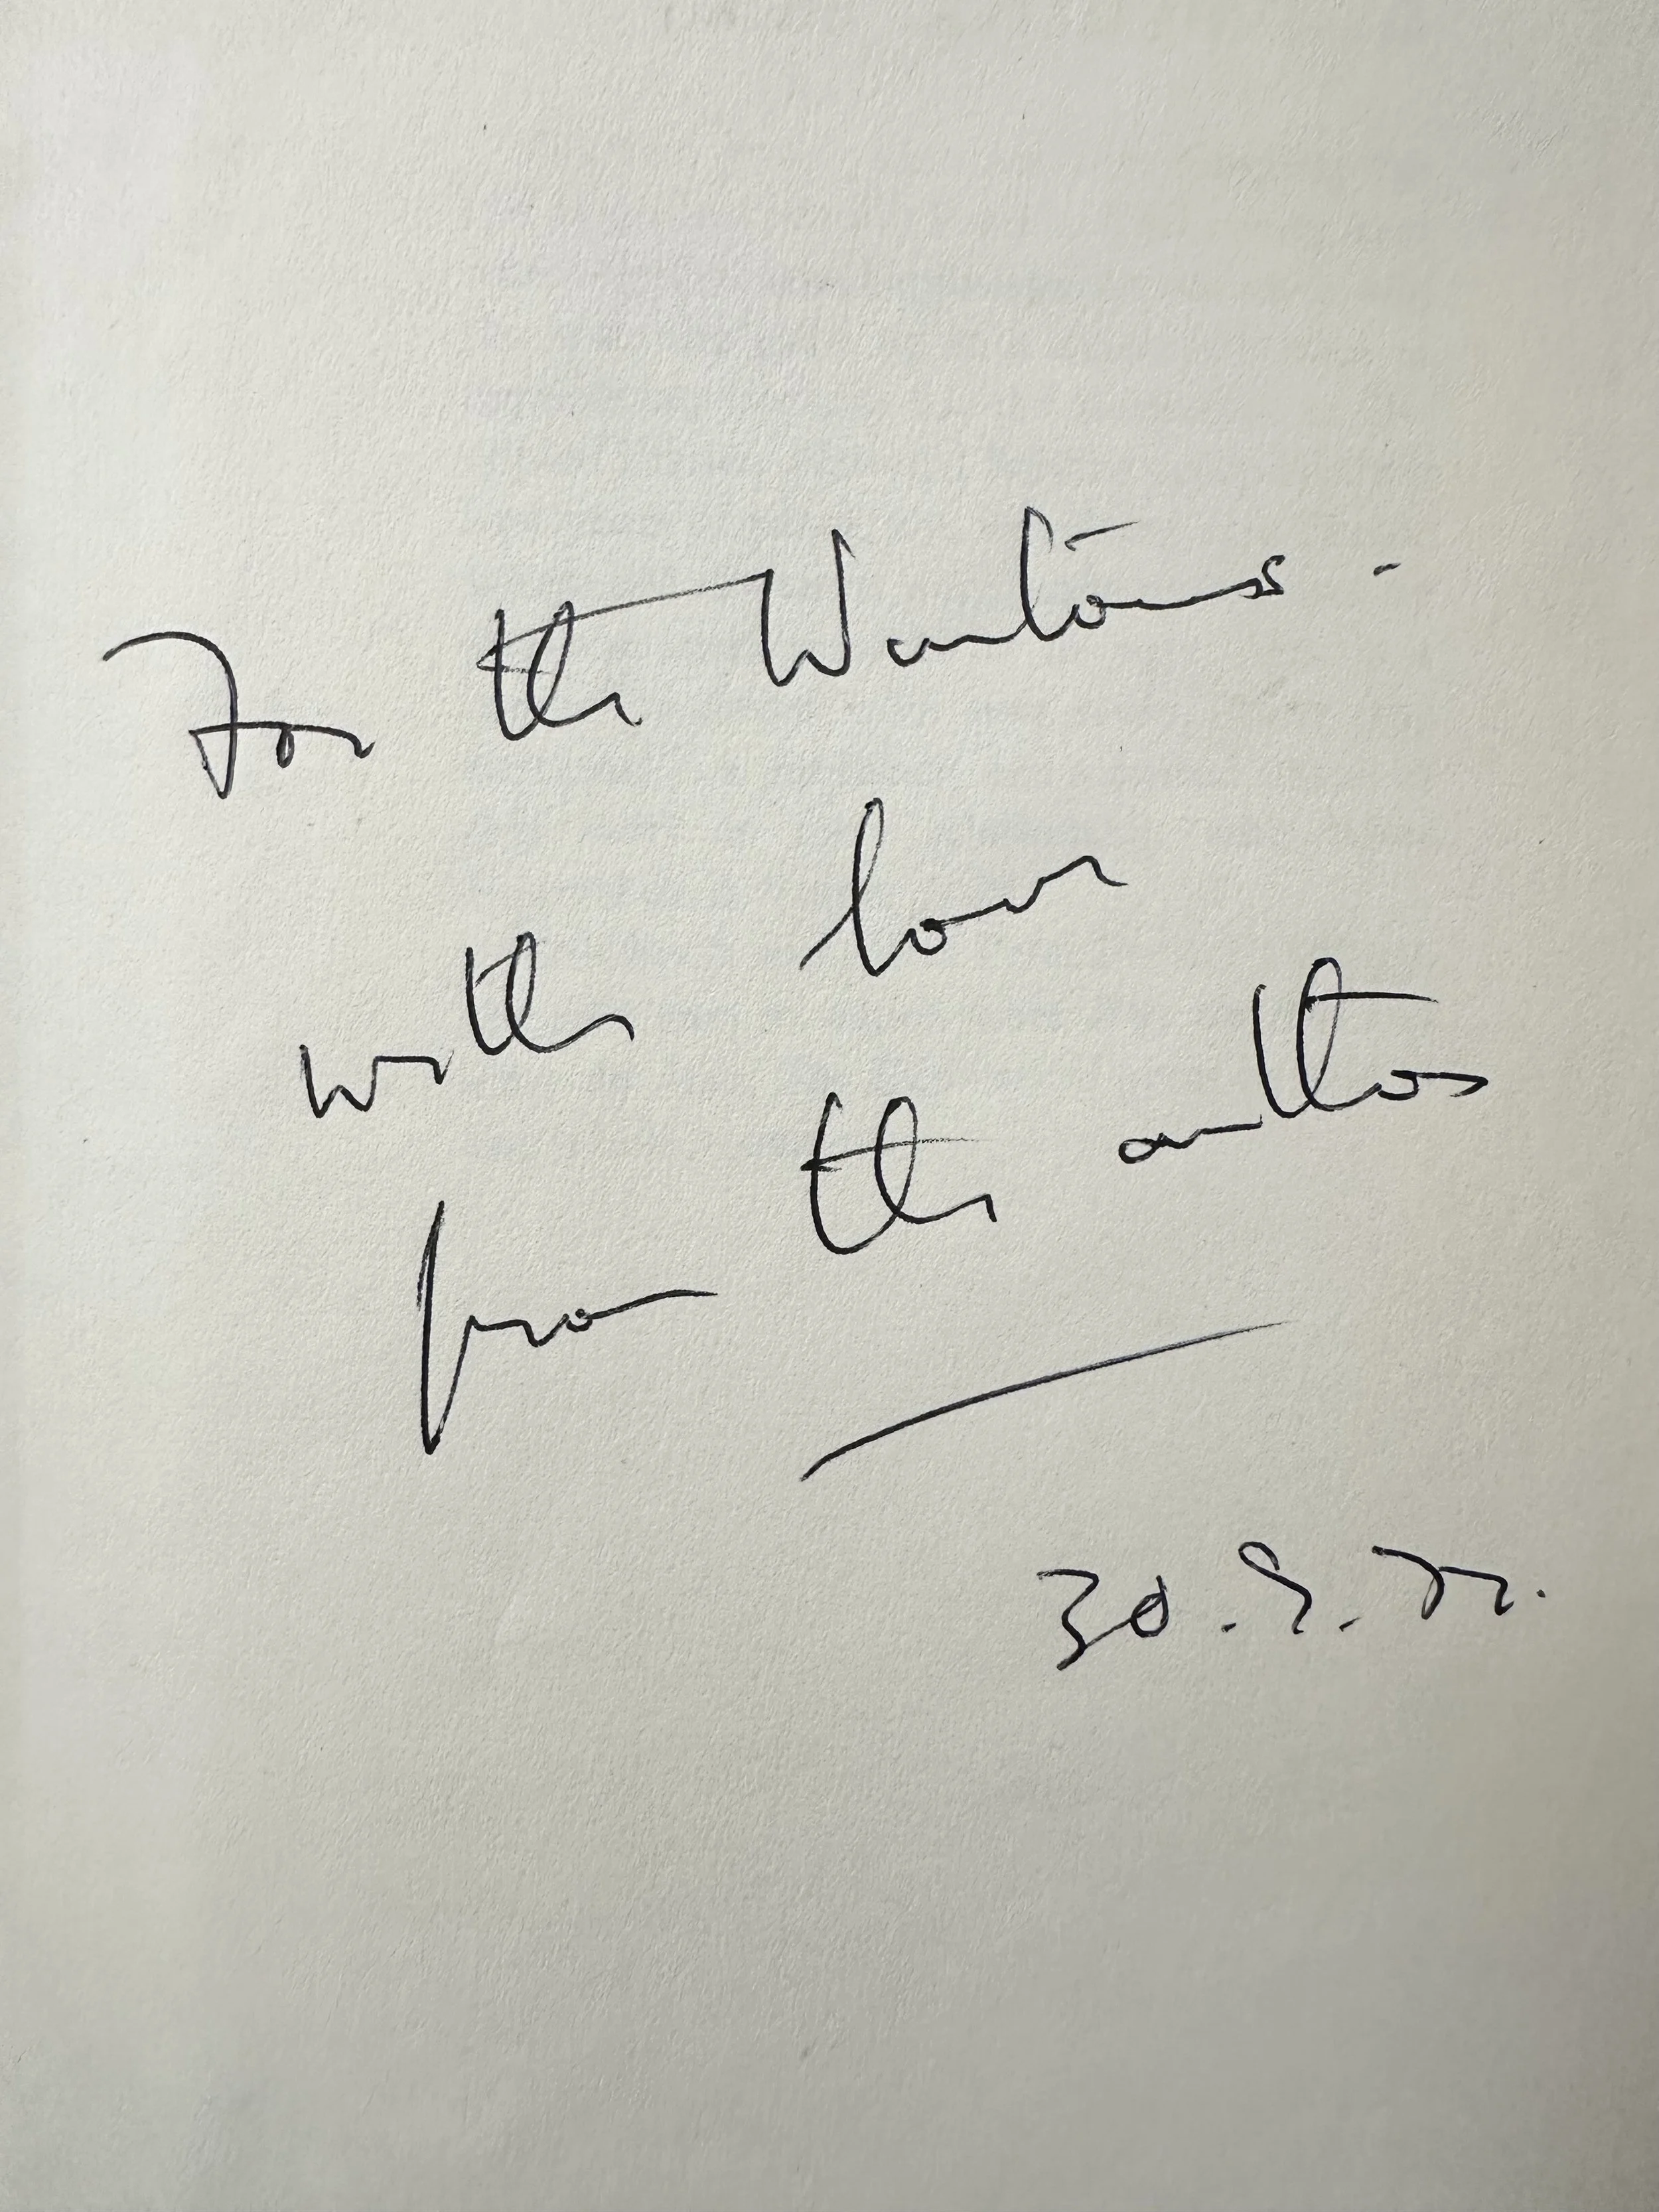 For the Wantons -
with love
from the author
30.9.72.